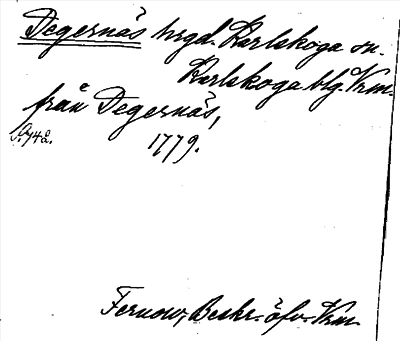 Degernäs hrgd. Karlskoga sn.
Karlskoga blg. Vrm.
från Degernäs,
S. 742. 1779.
Fernow, Beskr. öfv. Vrm.